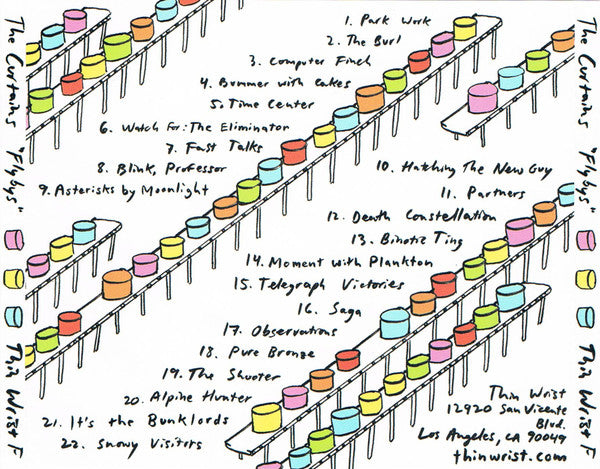 The Curtains "Flybys" Thin Wrist F
1. Park Work
2. The Burl
3. Computer Finch
4. Bummer with Cakes
5. Time Center
6. Watch For: The Eliminator
7. Fast Talks
8. Blink, Professor
9. Asterisks by Moonlight
10. Hatching The New Guy
11. Partners
12. Death Constellation
13. Binotic Ting
14. Moment with Plankton
15. Telegraph Victories
16. Saga
17. Observations
18. Pure Bronze
19. The Shooter
20. Alpine Hunter
21. It's the Bunklords
22. Snowy Visitors
Thin Wrist
12920 San Vicente
Blvd.
Los Angeles, CA 90049
thinwrist.com
The Curtains "Flybys" Thin Wrist F